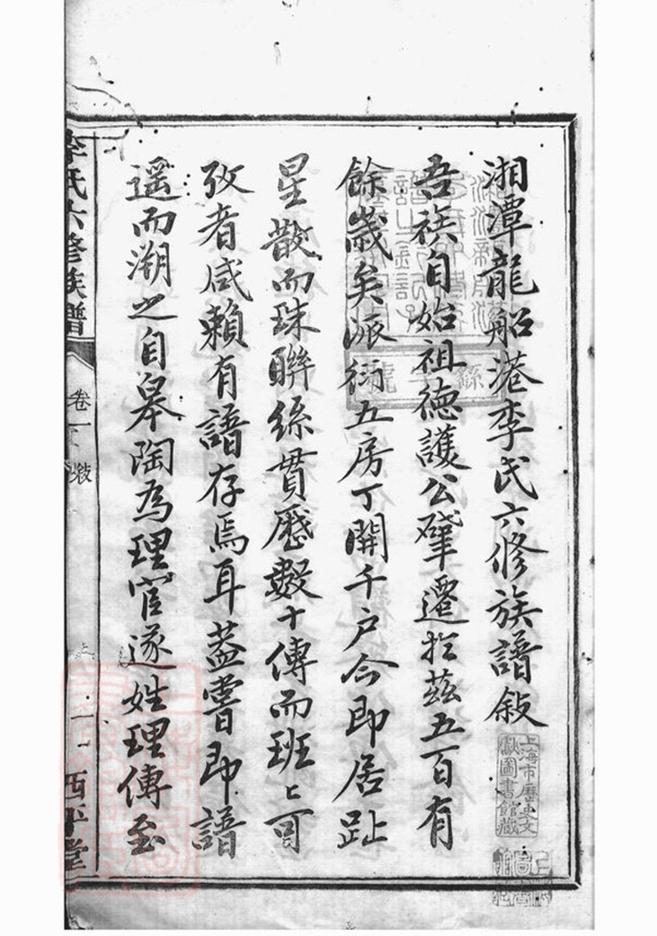 湘潭龍船港李氏六修族譜敍
吾族自始祖德護公肈遷於茲五百有
餘歲矣派衍五房丁開千戶今即居趾
星散而珠聯絲貫歷數十傳而班〻可
攷者咸賴有譜存焉耳葢嘗即譜
遥而溯之自皋陶為理官遂姓理傳至
李氏六修族譜
卷一
敍
一
西平堂
上海市歷史文
獻圖書館藏